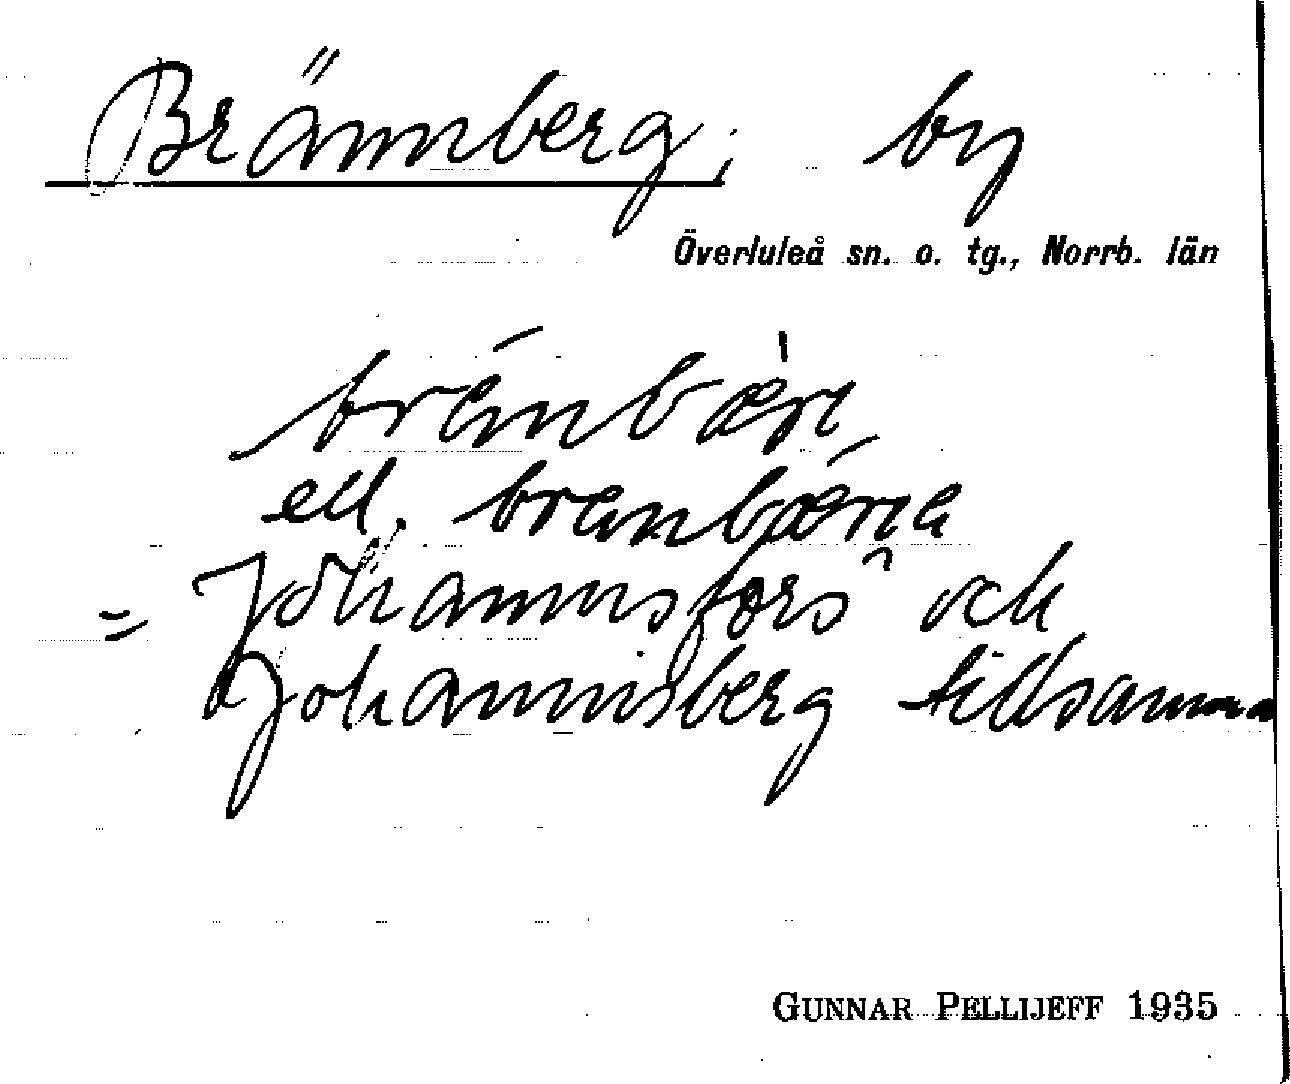 Brännberg; by
Överluleå sn. o. tg., Norrb. län
bränbæri
ell. brenbæria
= Johannisfors och
Johannisberg tillsamma
GUNNAR PELLIJEFF 1935